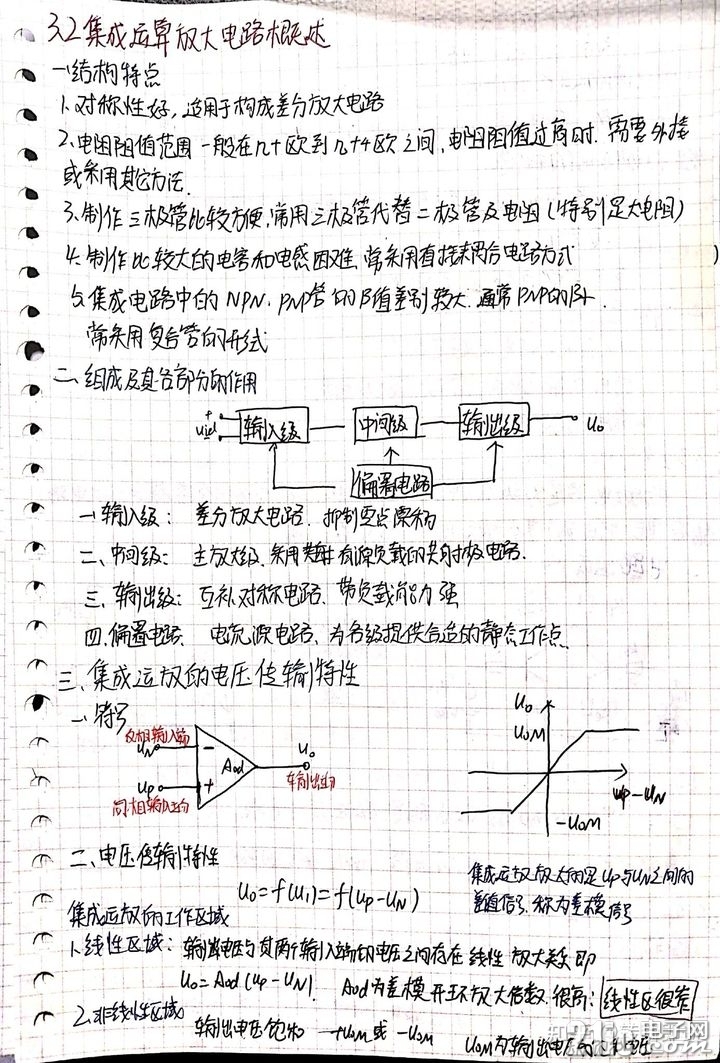 3.2集成运算放大电路概述
一、结构特点
1.对称性好，适用于构成差分放大电路
2.电阻阻值范围一般在几十欧到几十千欧之间，电阻阻值过高时.需要外接
或采用其它方法.
3.制作三极管比较方便，常用三极管代替二极管及电阻（特别是大电阻）
4.制作比较大的电容和电感困难.常采用直接耦合电路方式
5.集成电路中的NPN、PNP管的β值差别较大.通常PNP的β小.
常采用复合管的形式
二、组成及其各部分的作用
+
uid
-
输入级
中间级
输出级
uo
偏置电路
一、输入级：差分放大电路.抑制零点漂移
二、中间级：主放大级.采用有源负载的共射极电路.
三、输出级：互补对称电路、带负载能力强
四.偏置电路、电流源电路、为各级提供合适的静态工作点
三、集成运放的电压传输特性
一、符号
反相输入端
uN
-
Aod
uo
输出端
uP
+
同相输入端
uo
UOM
uP-uN
-UOM
二、电压传输特性
uo=f(uI)=f(uP-uN)
集成运放放大的是uP与uN之间的
差值信号.称为差模信号
集成运放的工作区域
1.线性区域：输出电压与其两个输入端的电压之间存在线性放大关系即
uo=Aod(uP-uN). Aod为差模开环放大倍数.很高；线性区很窄
2.非线性区域：
输出电压饱和 +UOM或-UOM
UOM为输出电压的